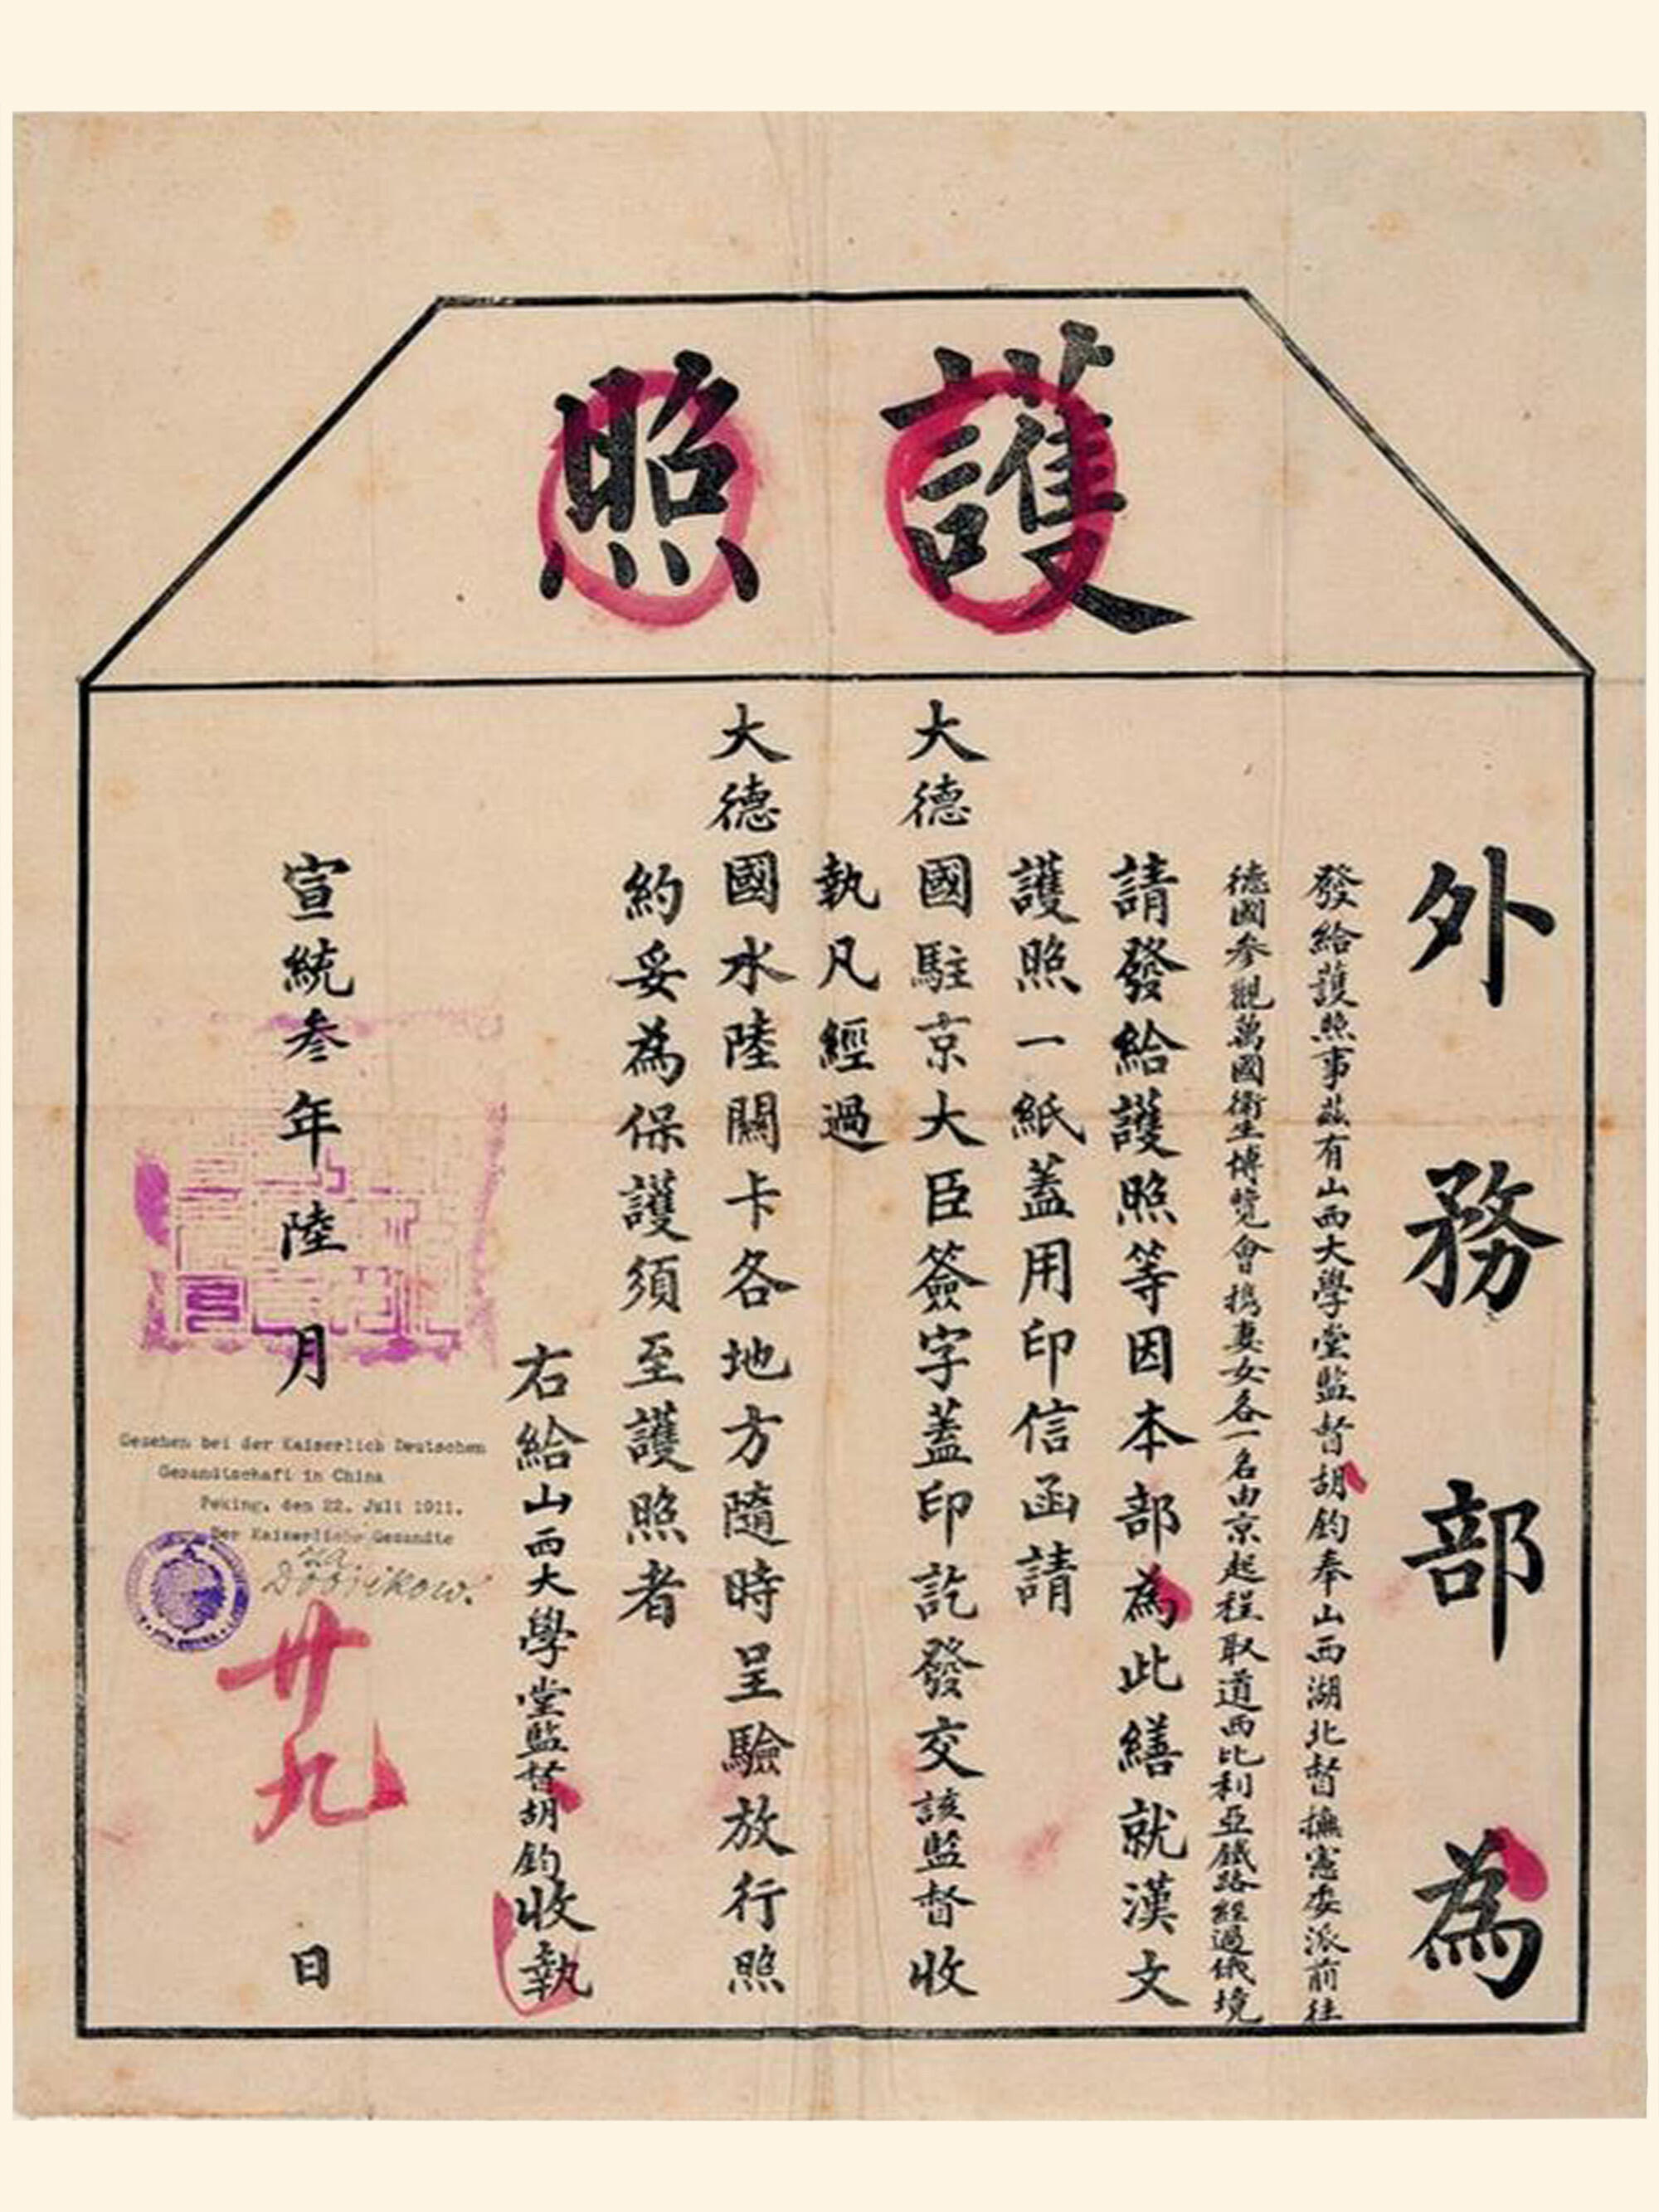 護照
外務部為
發給護照事茲有山西大學堂監督胡鈞奉山西湖北督撫憲委派前往
德國參觀萬國衛生博覽會攜妻女各一名由京起程取道西比利亞鐵路經過俄境
請發給護照等因本部為此繕就漢文
護照一紙蓋用印信函請
大德國駐京大臣簽字蓋印訖發交該監督收
執凡經過
大德國水陸關卡各地方隨時呈驗放行照
約妥為保護須至護照者
右給山西大學堂監督胡鈞收執
宣統叁年陸月廿九日
Gesehen bei der Kaiserlich Deutschen
Gesandtschaft in China
Peking, den 22. Juli 1911.
Der Kaiserliche Gesandte